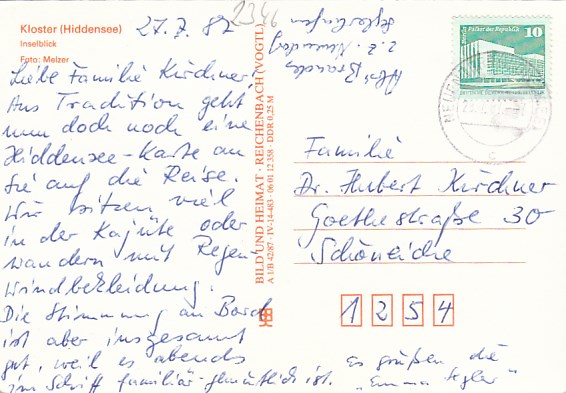 Kloster (Hiddensee)
Inselblick
Foto: Melzer
27.7.87
2346
Liebe Familie Kirchner!
Aus Tradition geht
nun doch noch eine
Hiddensee-Karte an
Sie auf die Reise.
Wir sitzen viel
in der Kajüte oder
wandern mit Regen-
Windbekleidung.
Die Stimmung an Bord
ist aber insgesamt
gut, weil es abends
im Schiff familiär-gemütlich ist.
es grüßen die
"Emma Segler"
z. Z. Neuendorf
BILD UND HEIMAT · REICHENBACH (VOGTL)
A 1/B 42/87 · IV-14-483 · 06 01 12 358 · DDR 0,25 M
Palast der Republik
10
Familie
Dr. Hubert Kirchner
Goethestraße 30
Schöneiche
1254